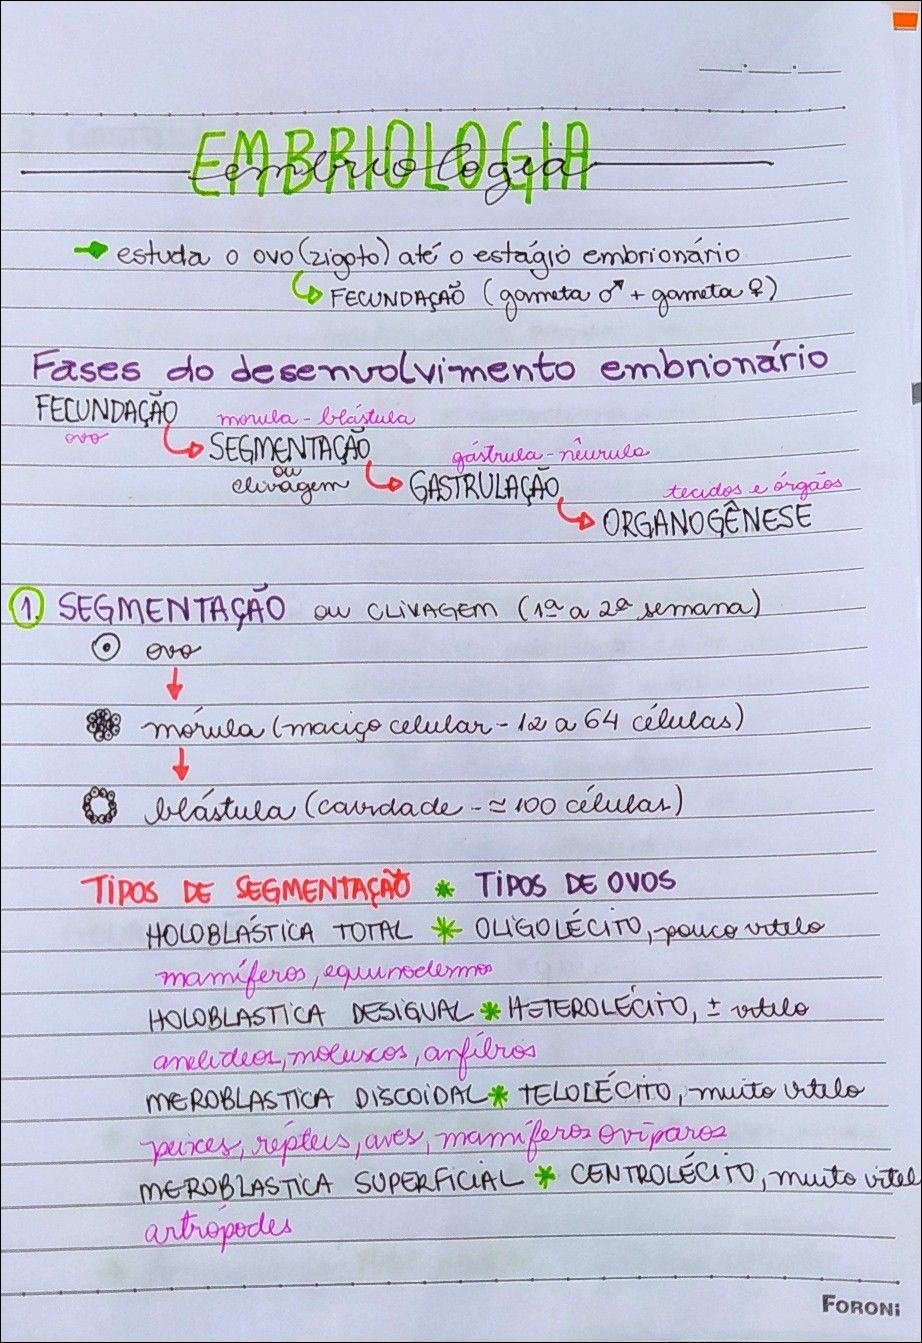 EMBRIOLOGIA
embriologia
estuda o ovo (zigoto) até o estágio embrionário
FECUNDAÇÃO (gameta ♂ + gameta ♀)
Fases do desenvolvimento embrionário
FECUNDAÇÃO
ovo
mórula - blástula
SEGMENTAÇÃO
ou
clivagem
gástrula - nêurula
GASTRULAÇÃO
tecidos e órgãos
ORGANOGÊNESE
1. SEGMENTAÇÃO ou CLIVAGEM (1ª a 2ª semana)
ovo
mórula (maciço celular - 12 a 64 células)
blástula (cavidade - ≃ 100 células)
TIPOS DE SEGMENTAÇÃO * TIPOS DE OVOS
HOLOBLÁSTICA TOTAL * OLIGOLÉCITO, pouco vitelo
mamíferos, equinodermos
HOLOBLASTICA DESIGUAL * HETEROLÉCITO, ± vitelo
anelídeos, moluscos, anfíbios
MEROBLASTICA DISCOIDAL * TELOLÉCITO, muito vitelo
peixes, répteis, aves, mamíferos ovíparos
MEROBLASTICA SUPERFICIAL * CENTROLÉCITO, muito vitel
artrópodes
FORONI